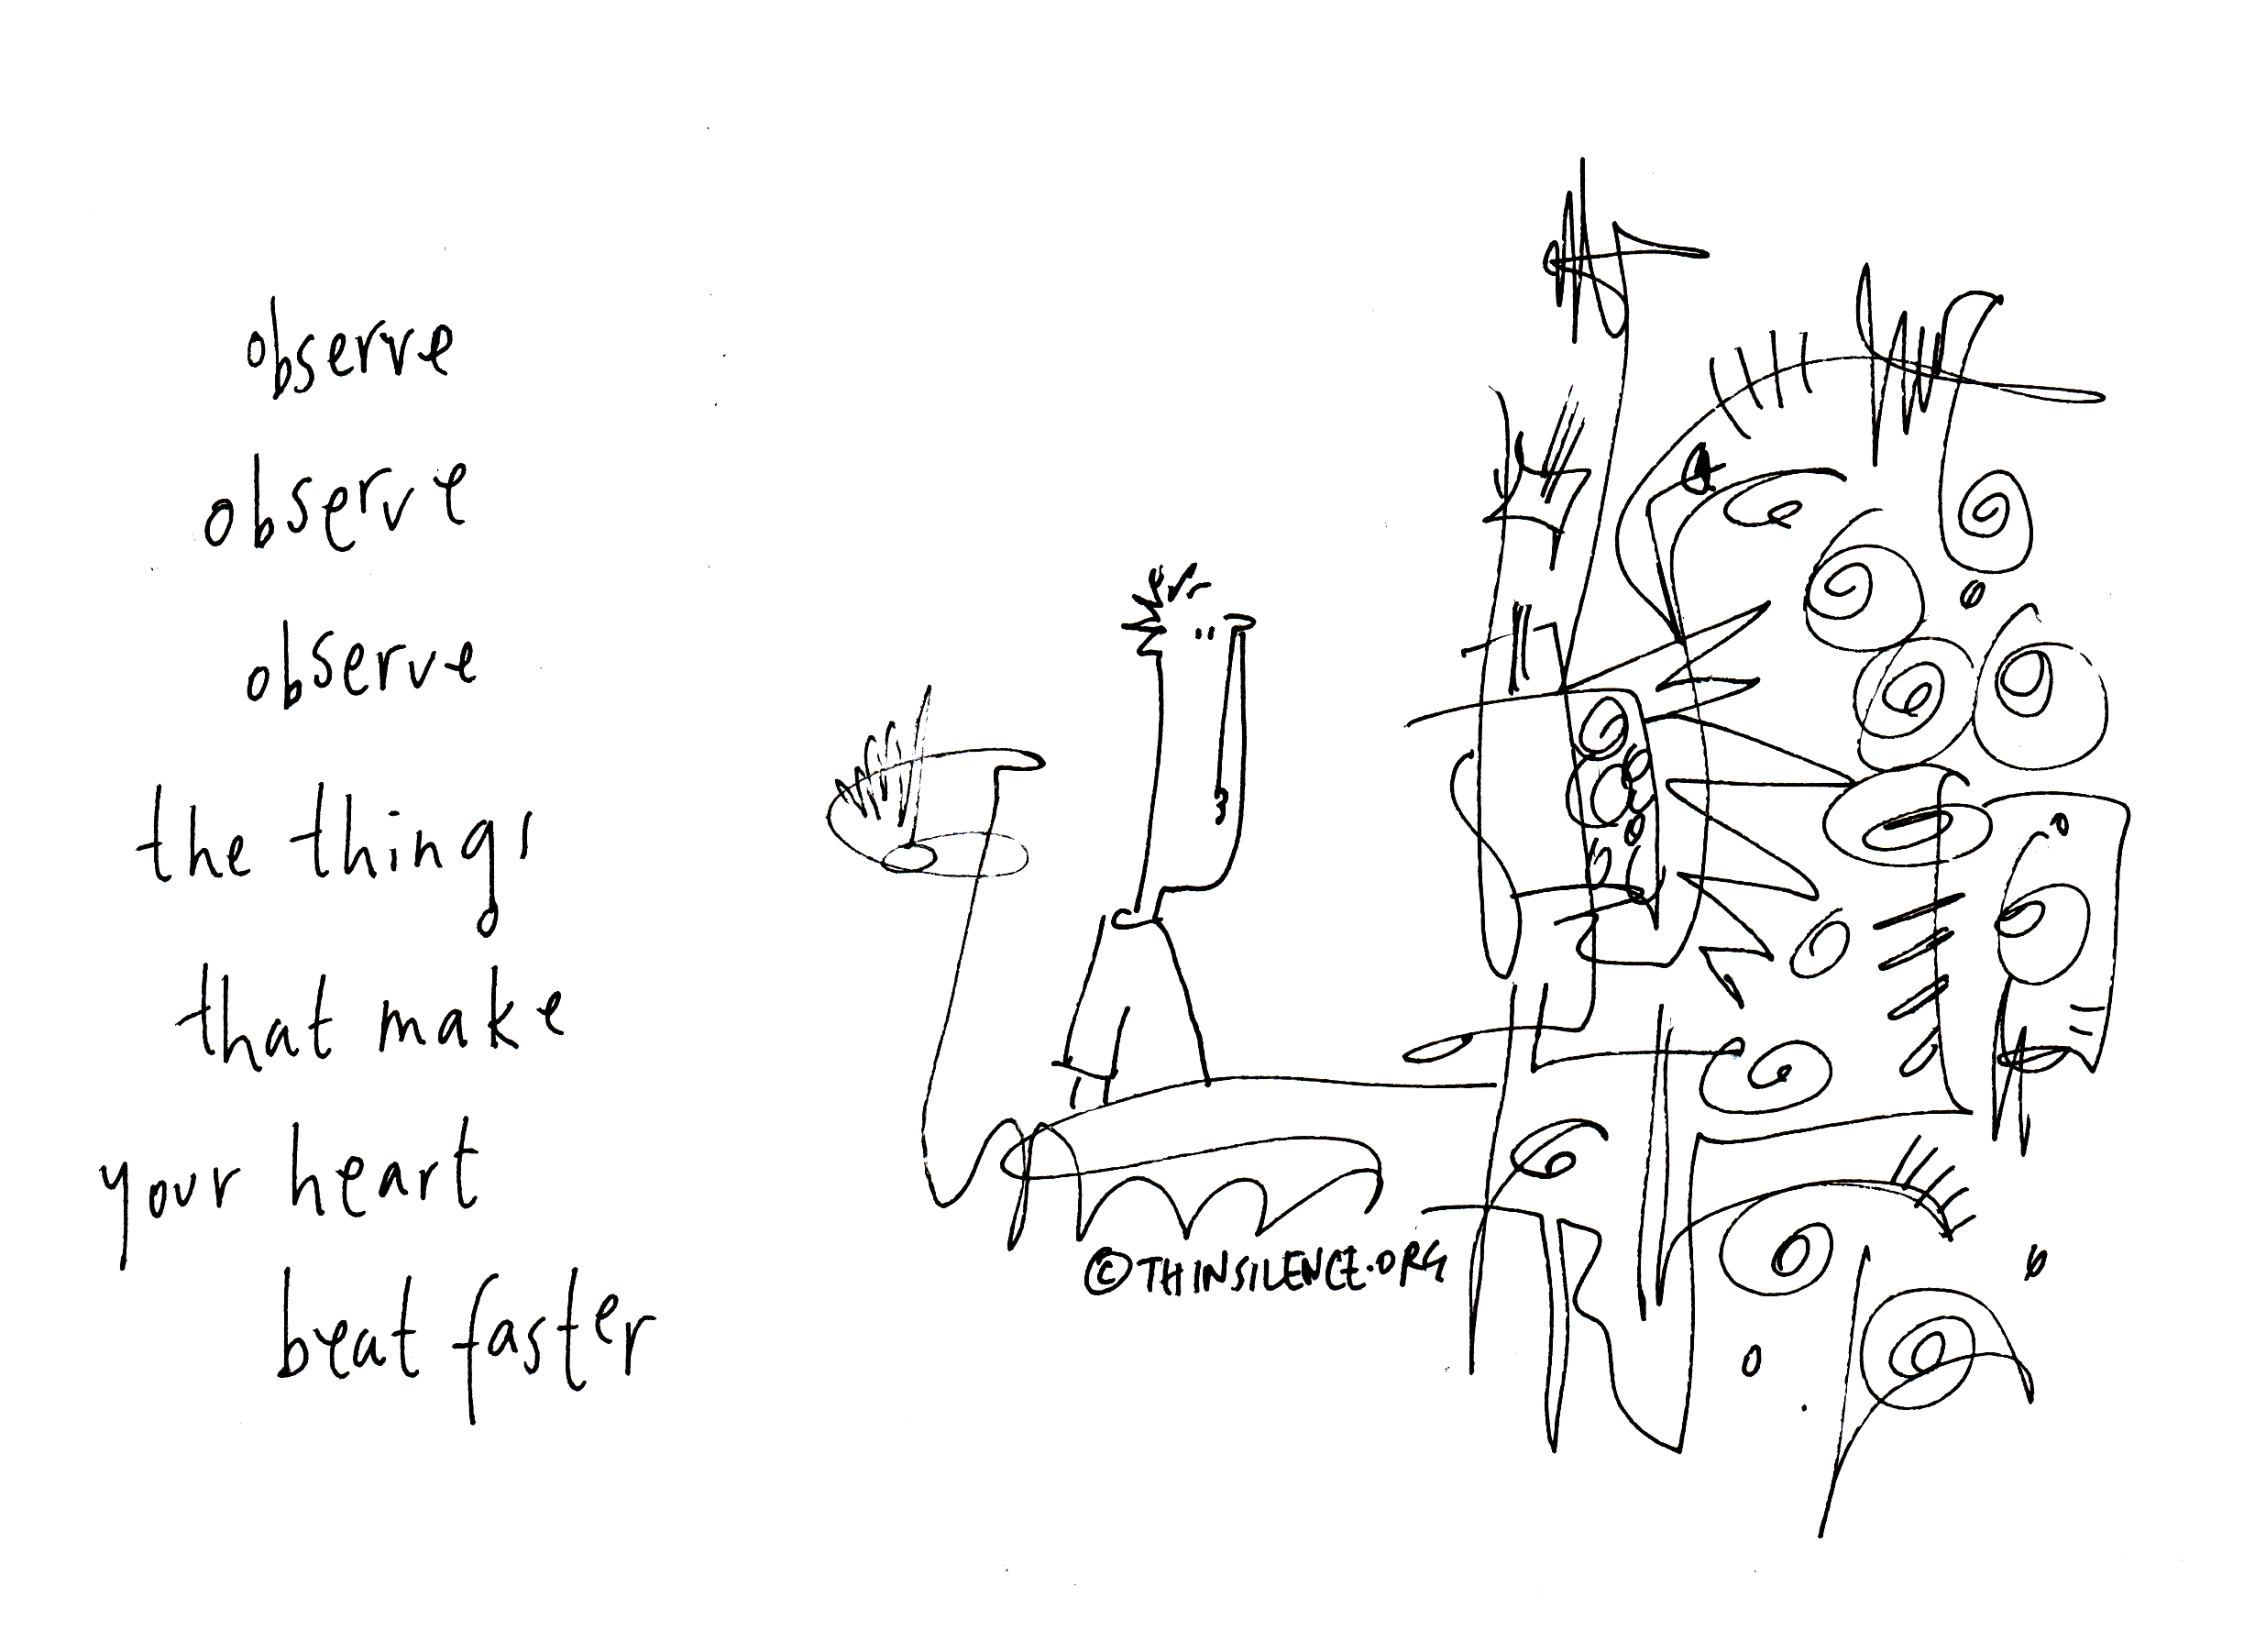 observe
observe
observe
the things
that make
your heart
beat faster
©THINSILENCE.ORG